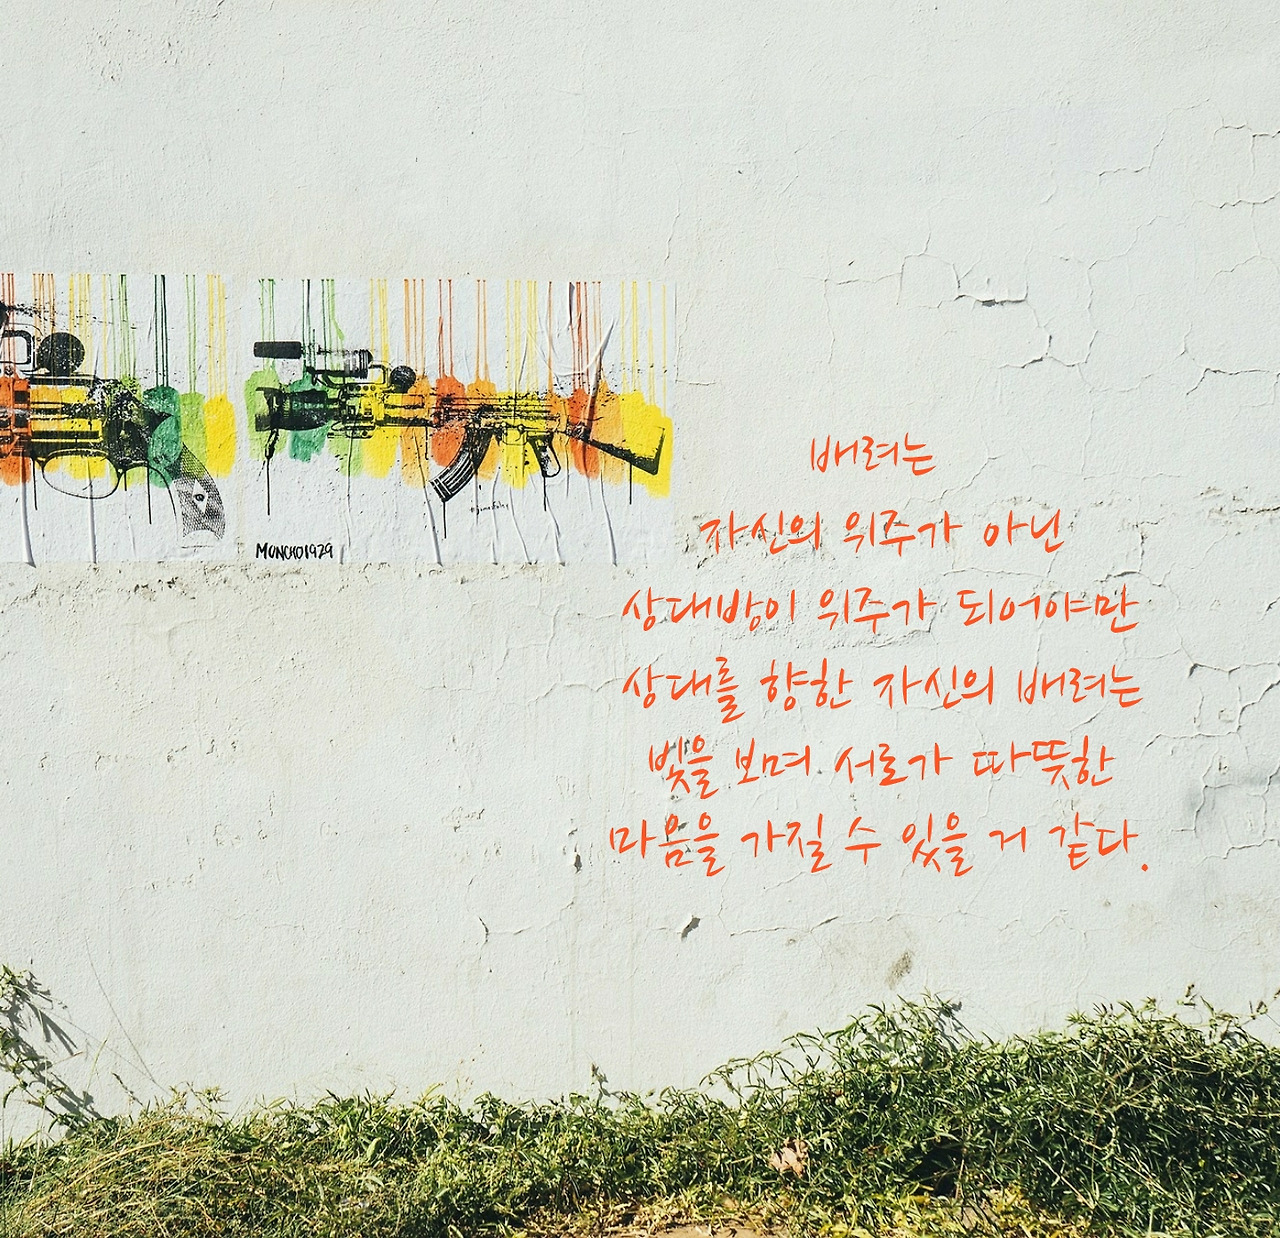 MUNCHO1929
배려는
자신의 위주가 아닌
상대방이 위주가 되어야만
상대를 향한 자신의 배려는
빛을 보며 서로가 따뜻한
마음을 가질 수 있을 거 같다.